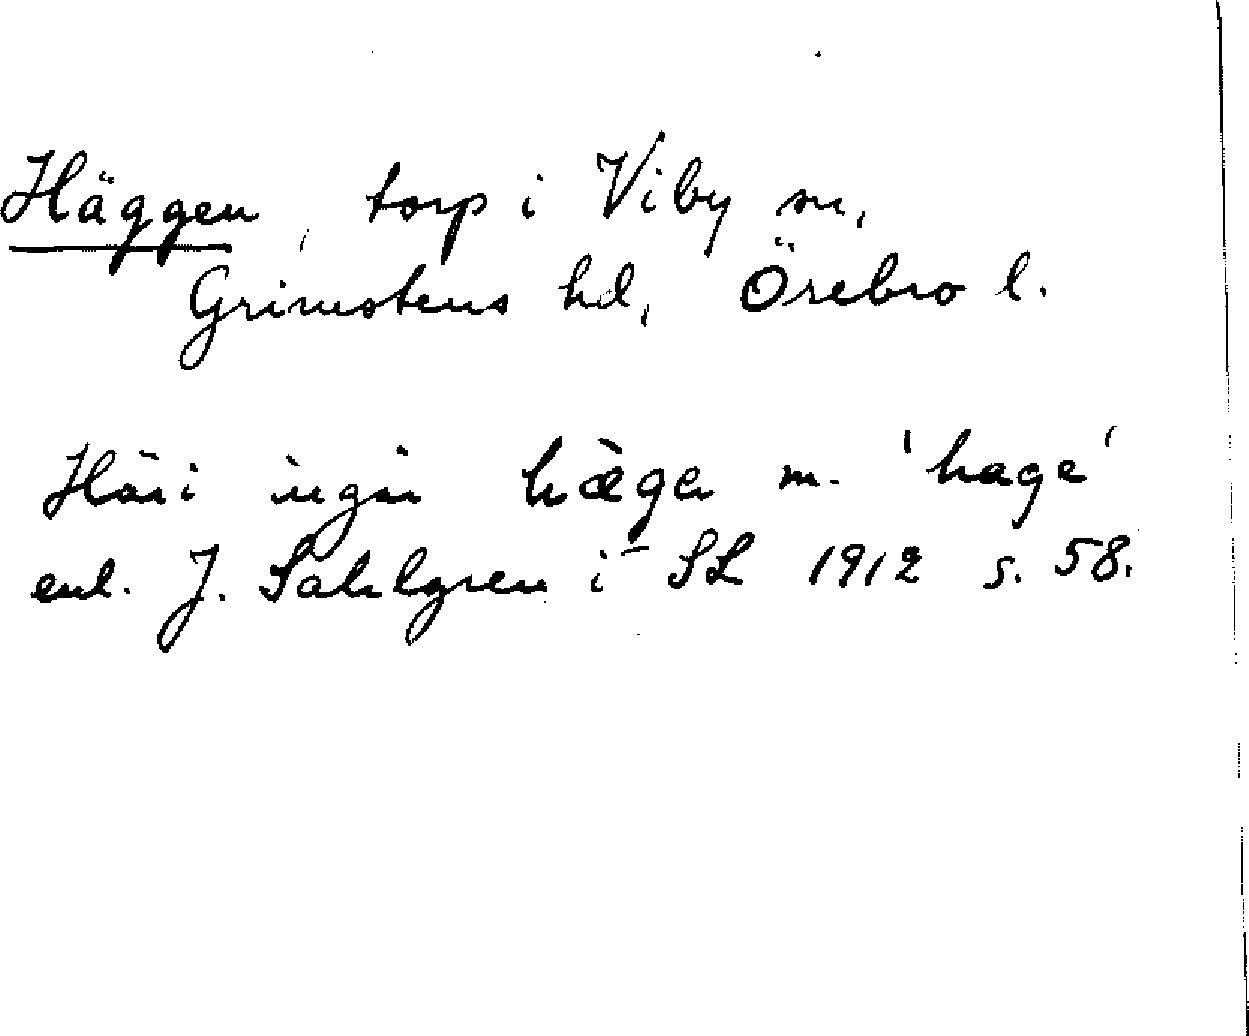 Häggen, torp i Viby sn,
Grimstens hd, Örebro l.
Häri ingår hæge m. 'hage'
enl. J. Sahlgren i SL 1912 s. 58.